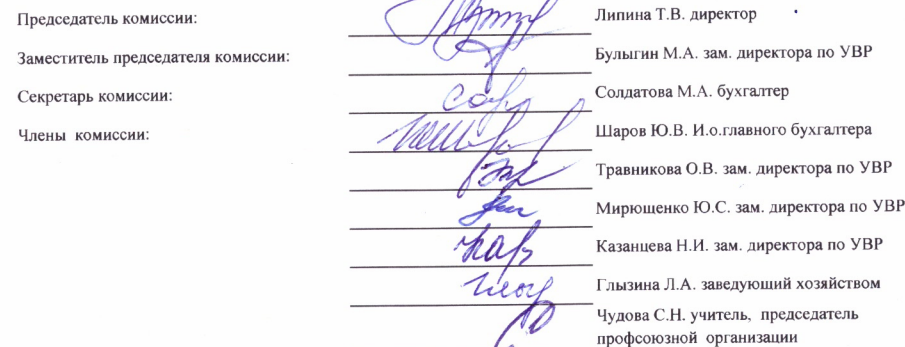 Председатель комиссии: Липина Т.В. директор
Заместитель председателя комиссии: Булыгин М.А. зам. директора по УВР
Секретарь комиссии: Солдатова М.А. бухгалтер
Члены комиссии: Шаров Ю.В. И.о.главного бухгалтера
Травникова О.В. зам. директора по УВР
Мирющенко Ю.С. зам. директора по УВР
Казанцева Н.И. зам. директора по УВР
Глызина Л.А. заведующий хозяйством
Чудова С.Н. учитель, председатель
профсоюзной организации